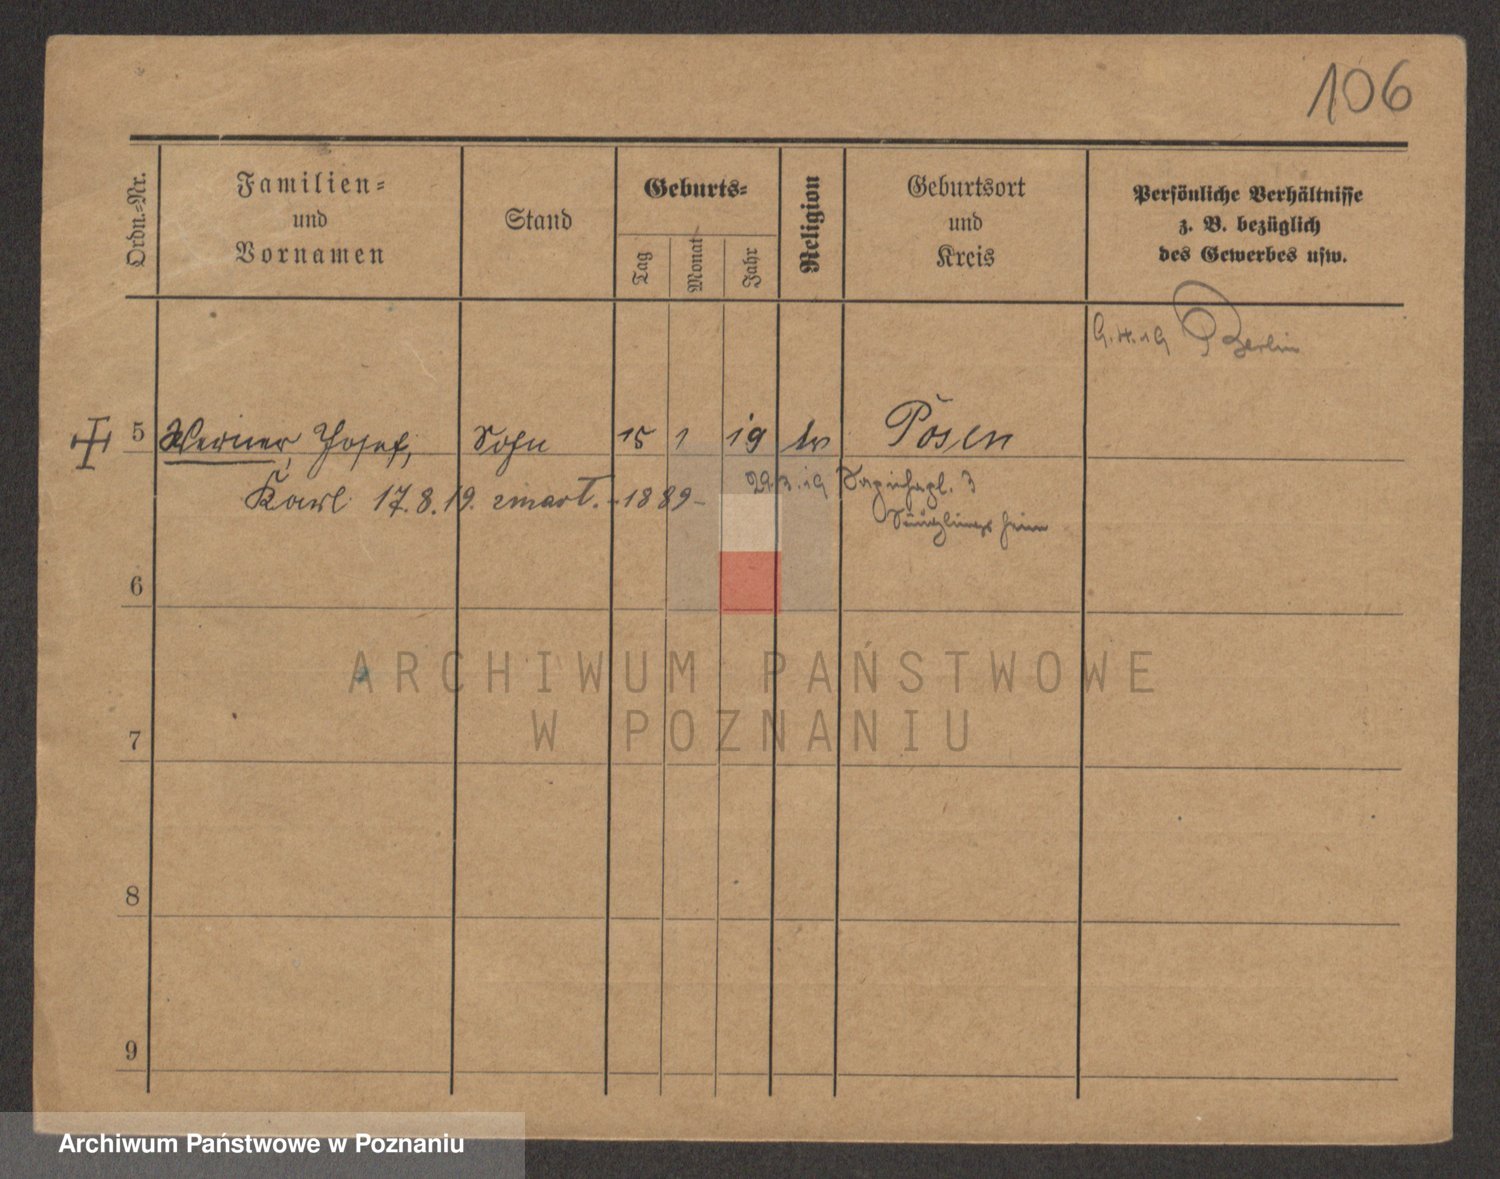 106
Ordn.-Nr.
Familien-
und
Vornamen
Stand
Geburts-
Tag
Monat
Jahr
Religion
Geburtsort
und
Kreis
Persönliche Verhältnisse
z. B. bezüglich
des Gewerbes usw.
Berlin
5 Werner, Josef, Sohn 15 1 19 Posen
Karl 17.8.19. zmarł. -1889- 29.3.19 Sapiehapl. 3
Säuglingsheim
6
ARCHIWUM PAŃSTWOWE
W POZNANIU
7
8
9
Archiwum Państwowe w Poznaniu